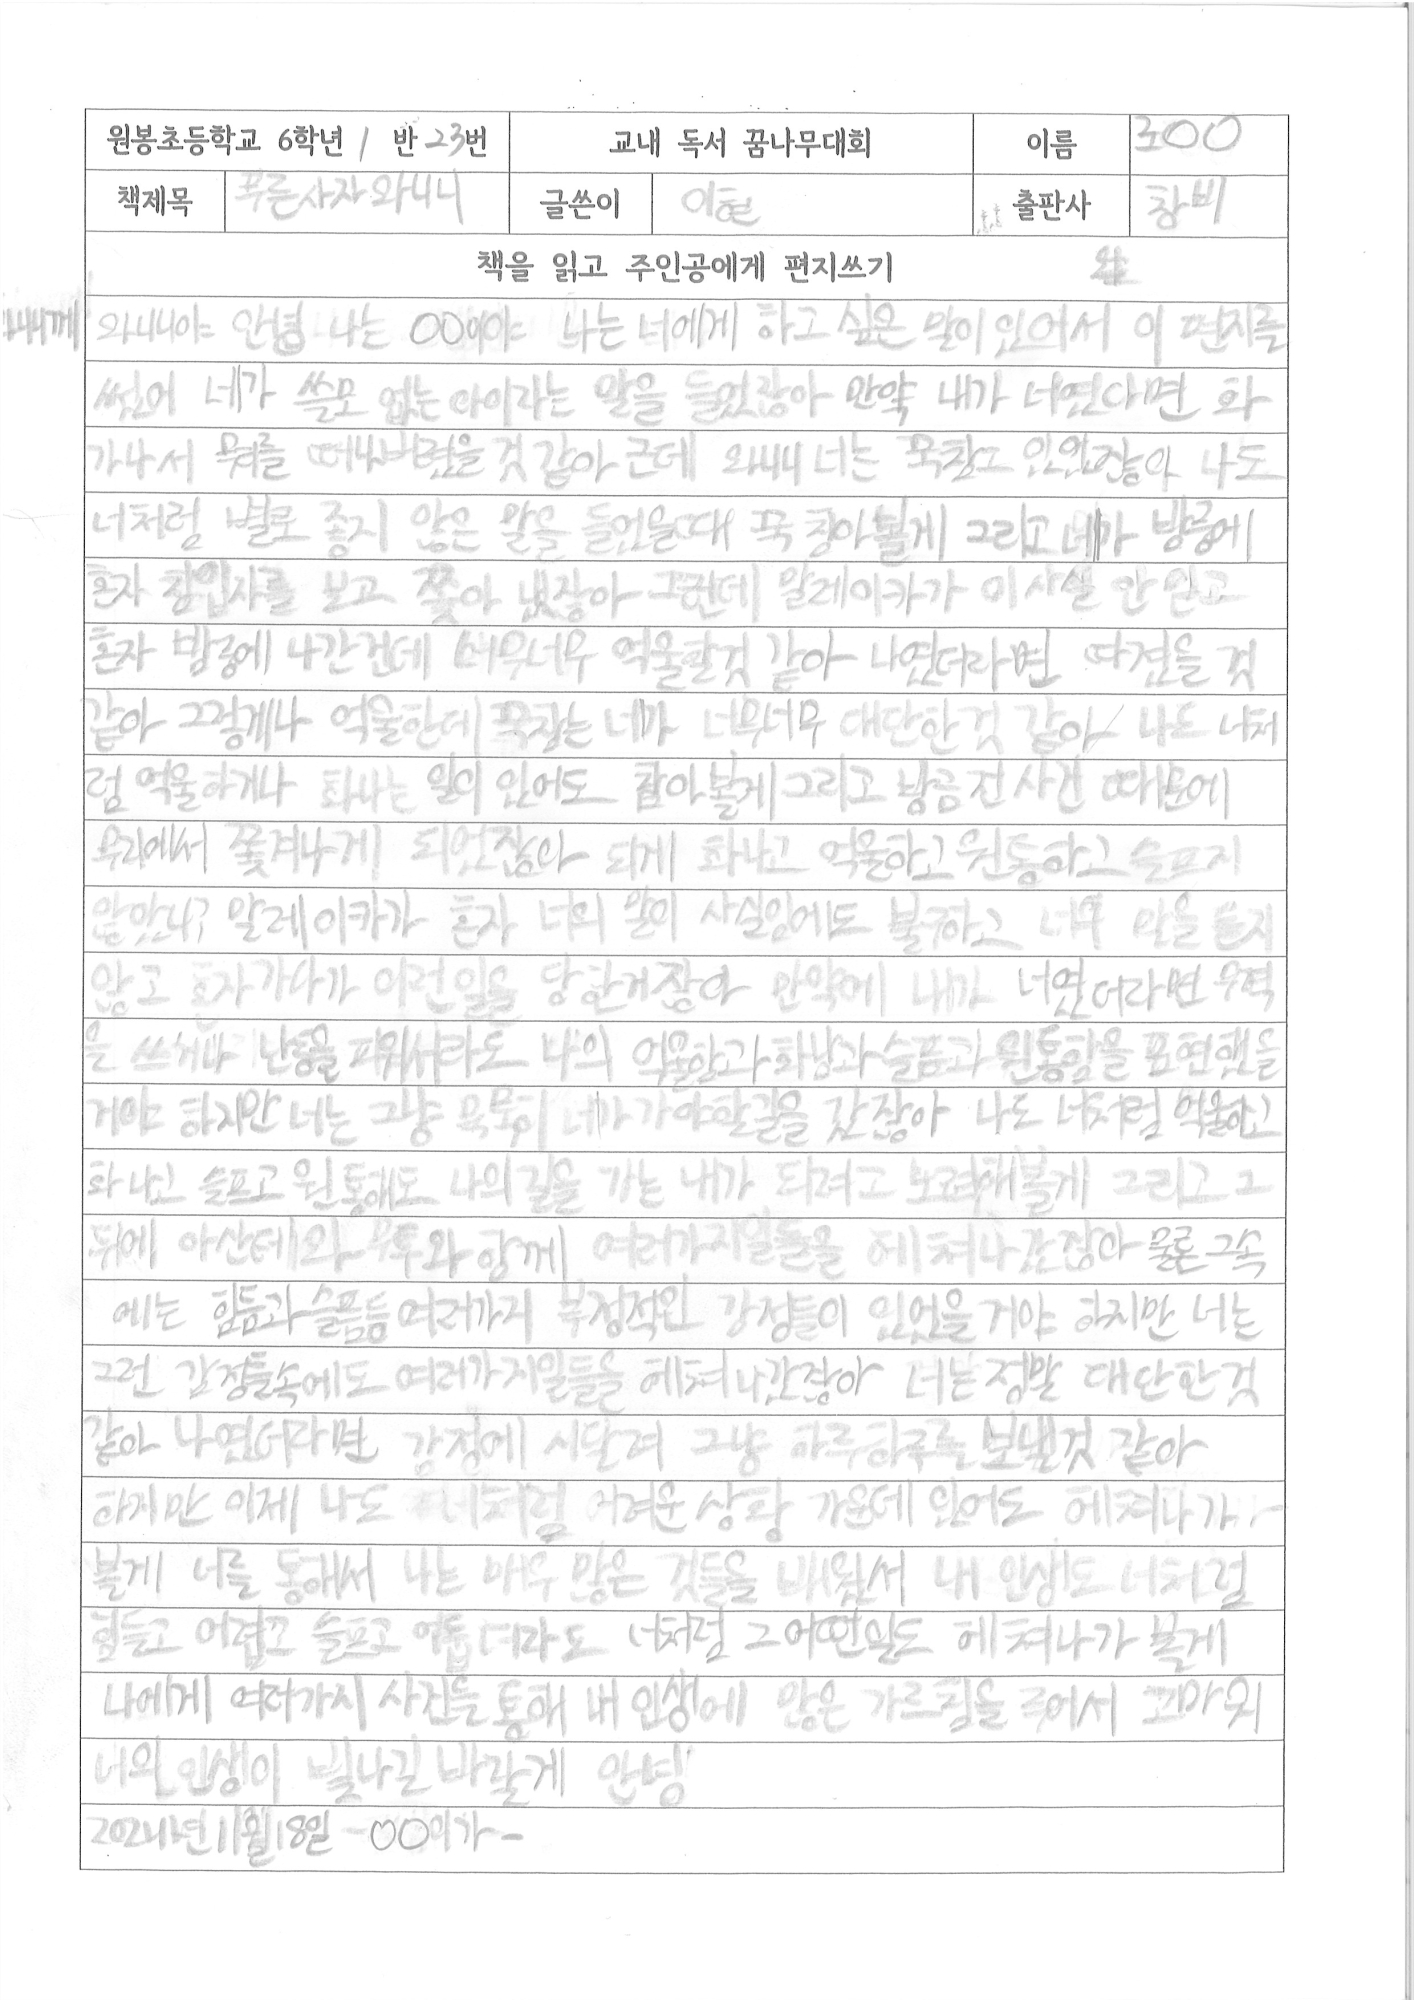 원봉초등학교 6학년 1 반 23번 교내 독서 꿈나무대회 이름 조OO
책제목 푸른사자와니니 글쓴이 이현 출판사 창비
책을 읽고 주인공에게 편지쓰기
와니니야 안녕 나는 OO이야 나는 너에게 하고 싶은 말이 있어서 이 편지를
썼어 네가 쓸모 없는 아이라는 말을 들었잖아 만약 내가 너였다면 화
가나서 뭐를 때려버렸을 것 같아 근데 와니니 너는 꾹참고 있었잖아 나도
너처럼 별로 좋지 않은 말을 들었을때 꾹 참아볼게 그리고 네가 밤중에
혼자 침입자를 보고 쫓아 냈잖아 그런데 말레이카가 이 사실 안 믿고
혼자 밤중에 나간건데 너무너무 억울할것 같아 나였더라면 따졌을 것
같아 그렇게나 억울한데 꾹참는 네가 너무너무 대단한 것 같아 나도 너처
럼 억울하거나 화나는 일이 있어도 참아볼게 그리고 방금 전 사건 때문에
무리에서 쫓겨나게 되었잖아 되게 화나고 억울하고 원통하고 슬프지
않았니? 말레이카가 혼자 너의 말이 사실임에도 불구하고 너의 말을 듣지
않고 혼자가다가 이런일을 당한거잖아 만약에 내가 너였더라면 우격
을 쓰거나 난동을 피워서라도 나의 억울함과 화남과 슬픔과 원통함을 표현했을
거야 하지만 너는 그냥 묵묵히 네가 가야할길을 갔잖아 나도 너처럼 억울하고
화나고 슬프고 원통해도 나의길을 가는 내가 되려고 노력해볼게 그리고 그
뒤에 아산테와 투와 함께 여러가지일들을 헤쳐나갔잖아 물론 그속
에는 힘듦과 슬픔등 여러가지 부정적인 감정들이 있었을 거야 하지만 너는
그런 감정들속에도 여러가지일들을 헤쳐나갔잖아 너는 정말 대단한것
같아 나였더라면 감정에 시달려 그냥 하루하루를 보낼것 같아
하지만 이제 나도 너처럼 어려운 상황 가운데 있어도 헤쳐나가
볼게 너를 통해서 나는 매우 많은 것들을 배웠서 내 인생도 너처럼
힘들고 어렵고 슬프고 어둡더라도 너처럼 그 어떤일도 헤쳐나가 볼게
나에게 여러가지 사건들 통해 내 인생에 많은 가르침을 주어서 고마워
너의 인생이 빛나길 바랄게 안녕
2024년 11월 18일 -OO이가-